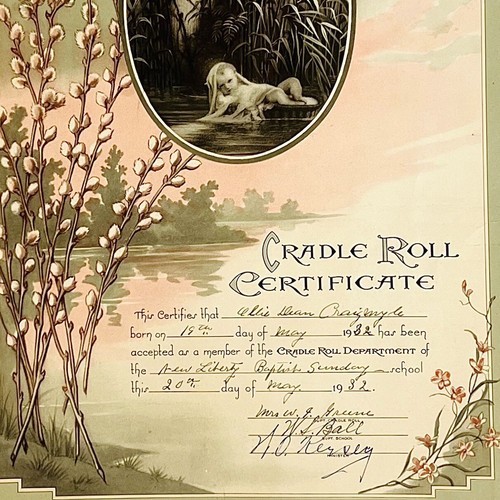 CRADLE ROLL
CERTIFICATE
This Certifies that Ollie Dean Craigmyle
born on 19th day of May 1932 has been
accepted as a member of the CRADLE ROLL DEPARTMENT of
the New Liberty Baptist Sunday school
this 20th day of May 1932.
Mrs W. J. Greene
SUPT. CRADLE ROLL
W. S. Ball
SUPT. SCHOOL
MINISTER